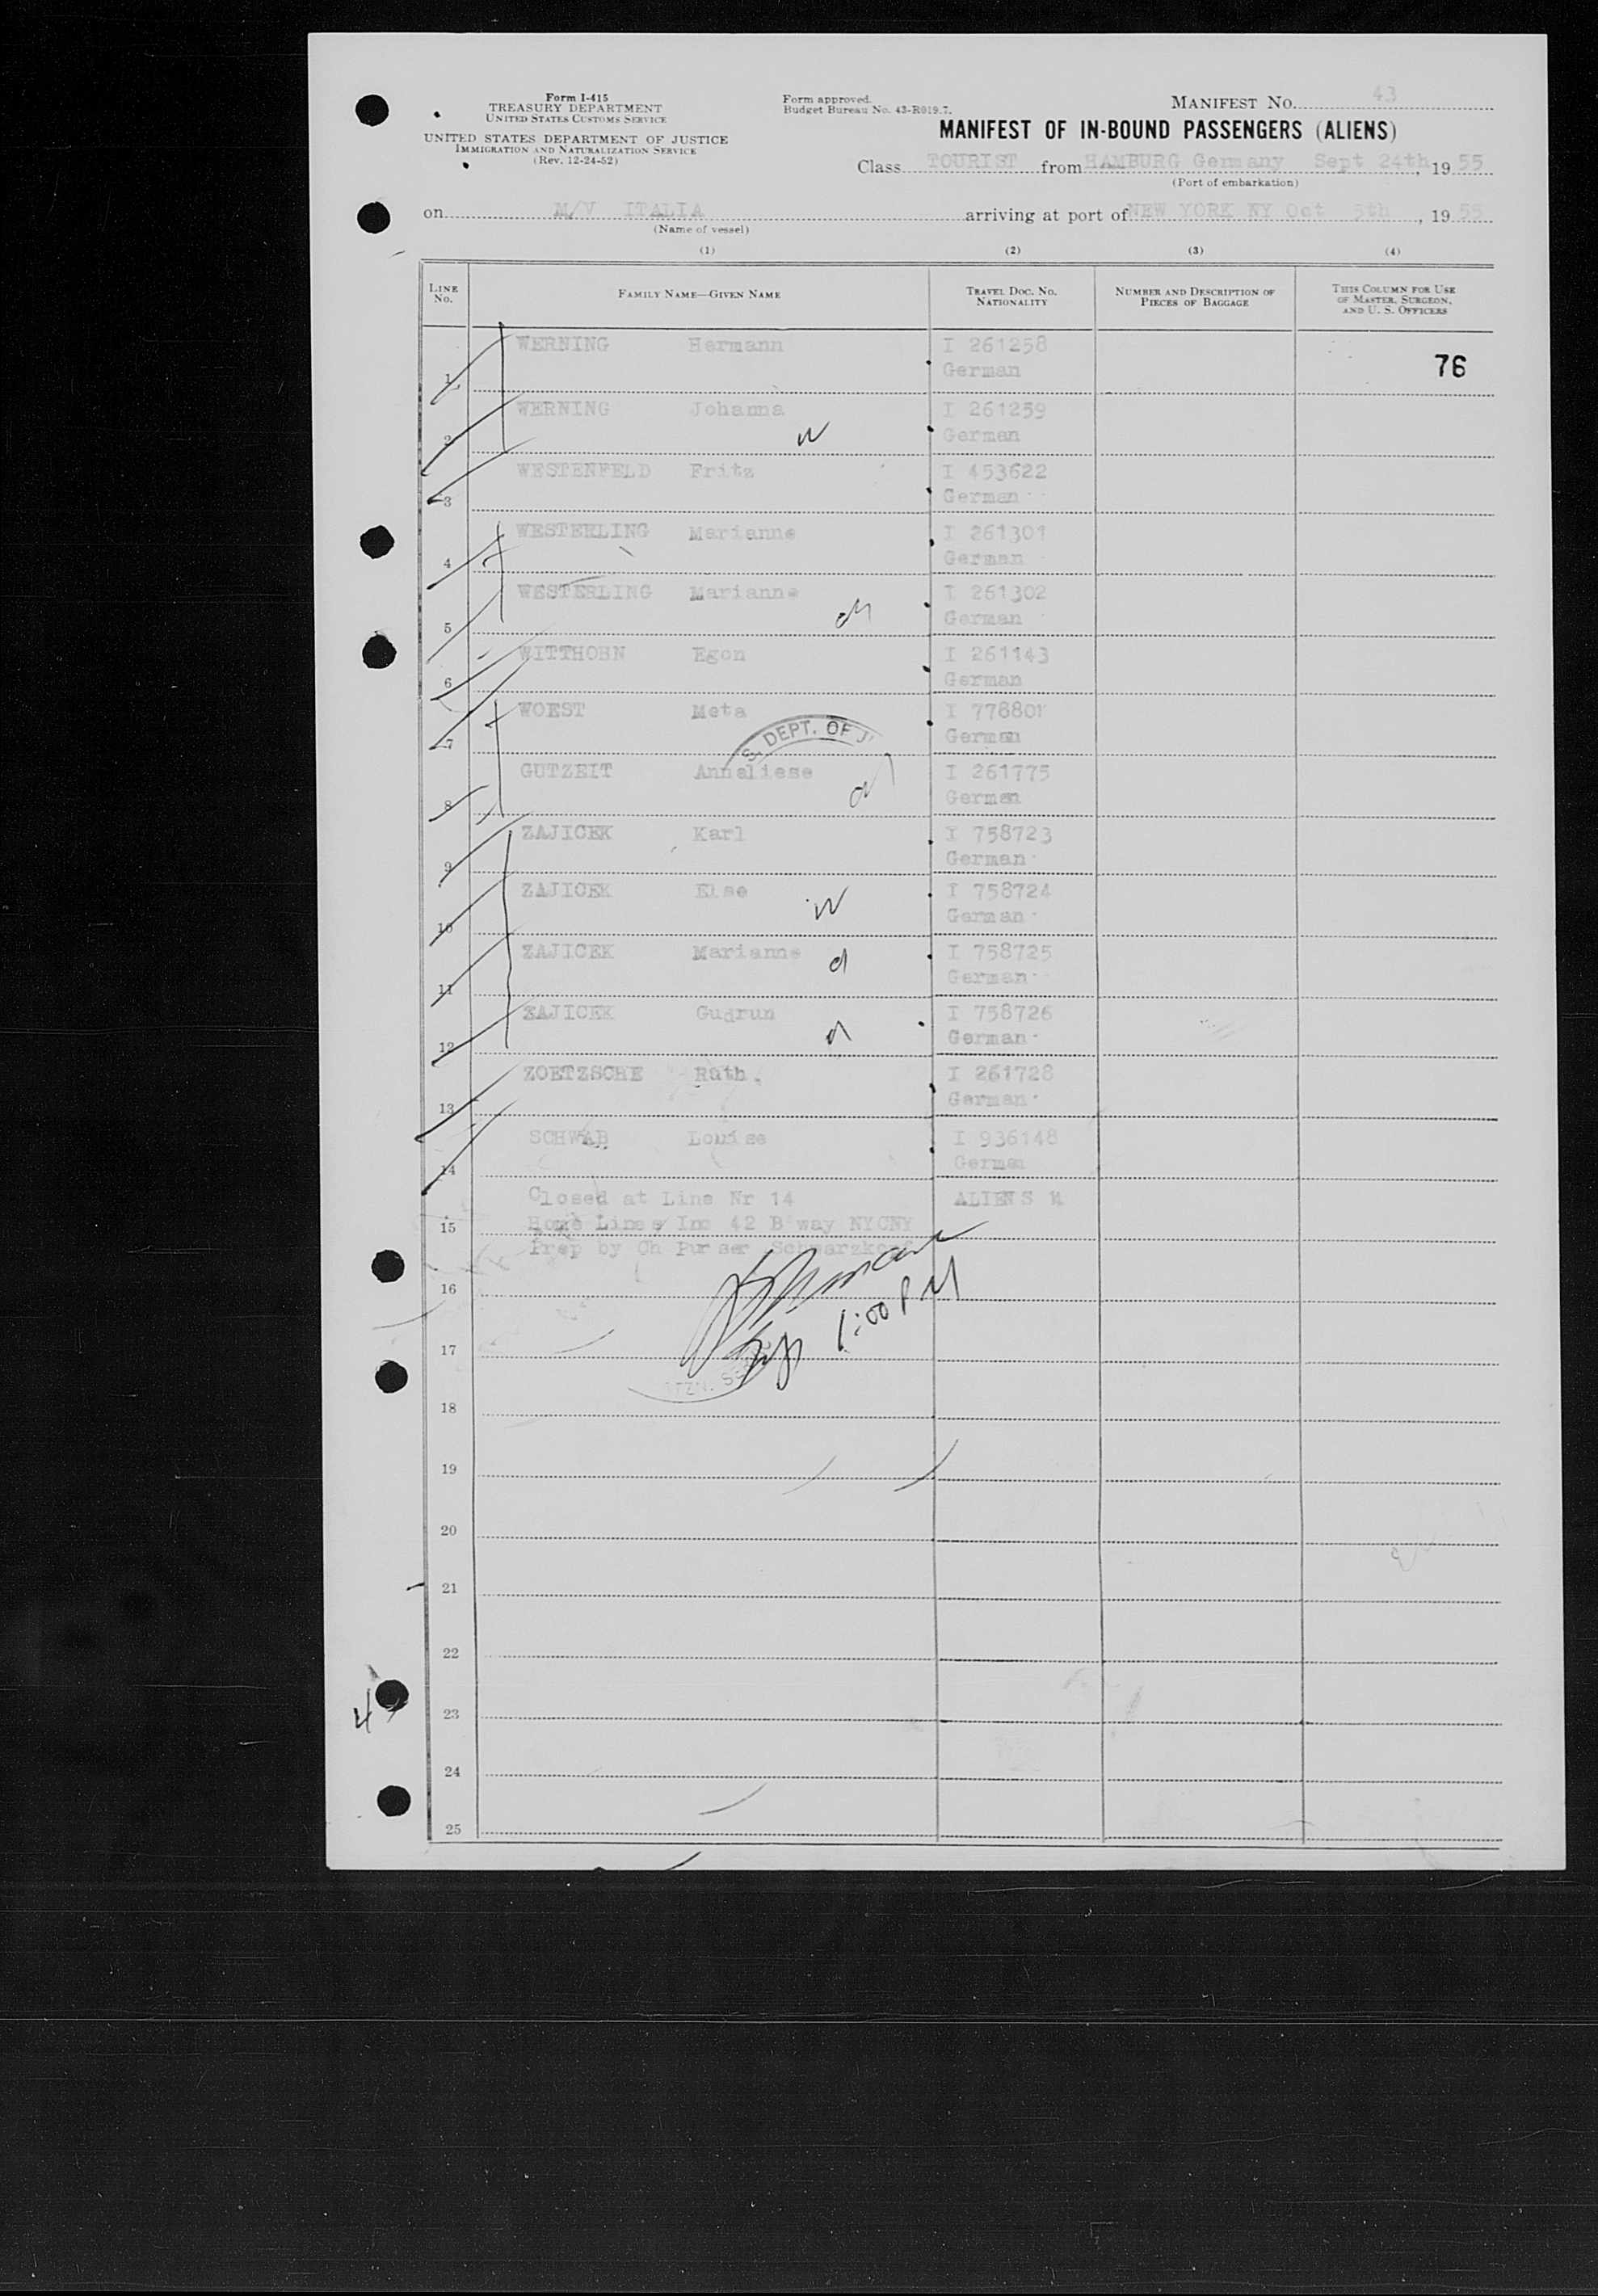 Form I-415
TREASURY DEPARTMENT
UNITED STATES CUSTOMS SERVICE
UNITED STATES DEPARTMENT OF JUSTICE
IMMIGRATION AND NATURALIZATION SERVICE
(Rev. 12-24-52)
Form approved.
Budget Bureau No. 43-R019.7.
MANIFEST No. 43
MANIFEST OF IN-BOUND PASSENGERS (ALIENS)
Class TOURIST from HAMBURG Germany Sept 24th, 19 55
(Port of embarkation)
on M/V ITALIA arriving at port of NEW YORK NY Oct 5th, 19 55
(Name of vessel)
(1) (2) (3) (4)
LINE No. FAMILY NAME—GIVEN NAME TRAVEL DOC. No. NATIONALITY NUMBER AND DESCRIPTION OF PIECES OF BAGGAGE THIS COLUMN FOR USE OF MASTER, SURGEON, AND U. S. OFFICERS
WERNING Hermann I 261258
1 German 76
WERNING Johanna I 261259
2 W German
WESTENFELD Fritz I 453622
3 German
WESTERLING Marianne I 261301
4 German
WESTERLING Marianne I 261302
5 German
WITTHOHN Egon I 261143
6 German
WOEST Meta I 778801
7 German
S. DEPT. OF J
GUTZEIT Annaliese I 261775
8 German
ZAJICEK Karl I 758723
9 German
ZAJICEK Else I 758724
10 W German
ZAJICEK Marianne I 758725
11 d German
ZAJICEK Gudrun I 758726
12 d German
ZOETZSCHE Ruth. I 261728
13 German
SCHWAB Louise I 936148
14 German
Closed at Line Nr 14 ALIENS 14
15 Home Lines Inc 42 B'way NYCNY
Prep by Ch Purser Schwarzkopf
16
1:00 PM
17
18
19
20
21
22
23
24
25